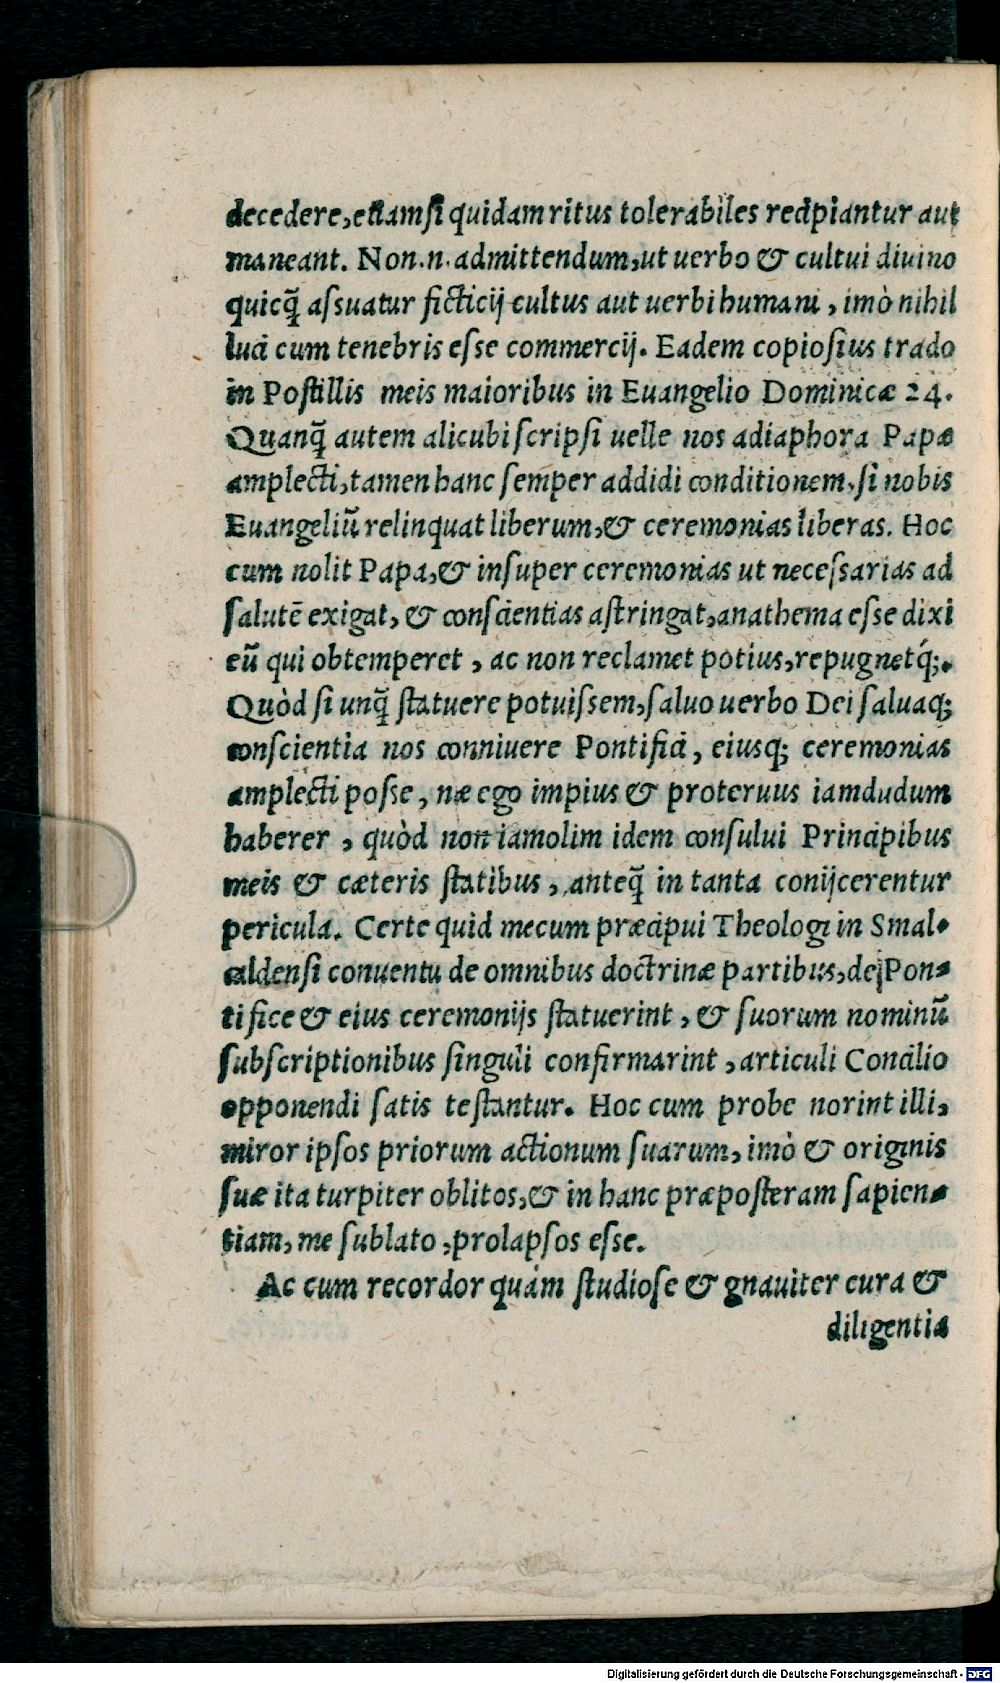 decedere, etiamsi quidam ritus tolerabiles recipiantur aut
maneant. Non.n. admittendum, ut uerbo & cultui diuino
quicq̃ assuatur ficticij cultus aut uerbi humani, imò nihil
luci cum tenebris esse commercij. Eadem copiosius trado
in Postillis meis maioribus in Euangelio Dominicæ 24.
Quanq̃ autem alicubi scripsi uelle nos adiaphora Papæ
amplecti, tamen hanc semper addidi conditionem, si nobis
Euangeliũ relinquat liberum, & ceremonias liberas. Hoc
cum nolit Papa, & insuper ceremonias ut necessarias ad
salutẽ exigat, & conscientias astringat, anathema esse dixi
eũ qui obtemperet, ac non reclamet potius, repugnetq́;.
Quòd si unq̃ statuere potuissem, saluo uerbo Dei saluaq;
conscientia nos conniuere Pontifici, eiusq; ceremonias
amplecti posse, næ ego impius & proteruus iamdudum
haberer, quòd non iamolim idem consului Principibus
meis & cæteris statibus, anteq̃ in tanta conijcerentur
pericula. Certe quid mecum præcipui Theologi in Smal-
caldensi conuentu de omnibus doctrinæ partibus, de Pon-
tifice & eius ceremonijs statuerint, & suorum nominũ
subscriptionibus singuli confirmarint, articuli Concilio
opponendi satis testantur. Hoc cum probe norint illi,
miror ipsos priorum actionum suarum, imò & originis
suæ ita turpiter oblitos, & in hanc præposteram sapien-
tiam, me sublato, prolapsos esse.
Ac cum recordor quám studiose & gnauiter cura &
diligentia
Digitalisierung gefördert durch die Deutsche Forschungsgemeinschaft - DFG